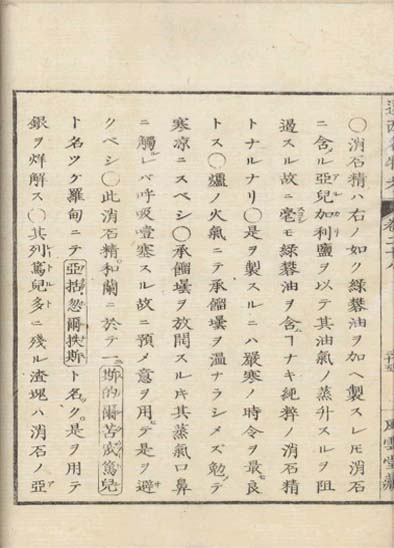 〇消石精ハ右ノ如ク緑礬油ヲ加ヘ製スレ𪜈消石
ニ含ル亞兒加利鹽ヲ以テ其油氣ノ蒸升スルヲ阻
遏スル故ニ毫モ緑礬油ヲ含ヿナキ純粹ノ消石精
トナルナリ〇是ヲ製スルニハ嚴寒ノ時令ヲ最良
トス〇爐ノ火氣ニテ承餾壜ヲ温ナラシメズ勉テ
寒凉ニスベシ〇承餾壜ヲ放開スル𪜈其蒸氣口鼻
ニ觸レバ呼吸噎塞スル故ニ預メ意ヲ用テ是ヲ避
クベシ〇此消石精和蘭ニ於テ一斯的爾苦
ト名ツク羅甸ニテ亞括忽爾挾斯ト名ク是ヲ用テ
銀ヲ烊解ス〇其列篤兒多ニ殘ル渣塊ハ消石ノ亞
卷二十八
風雲堂藏